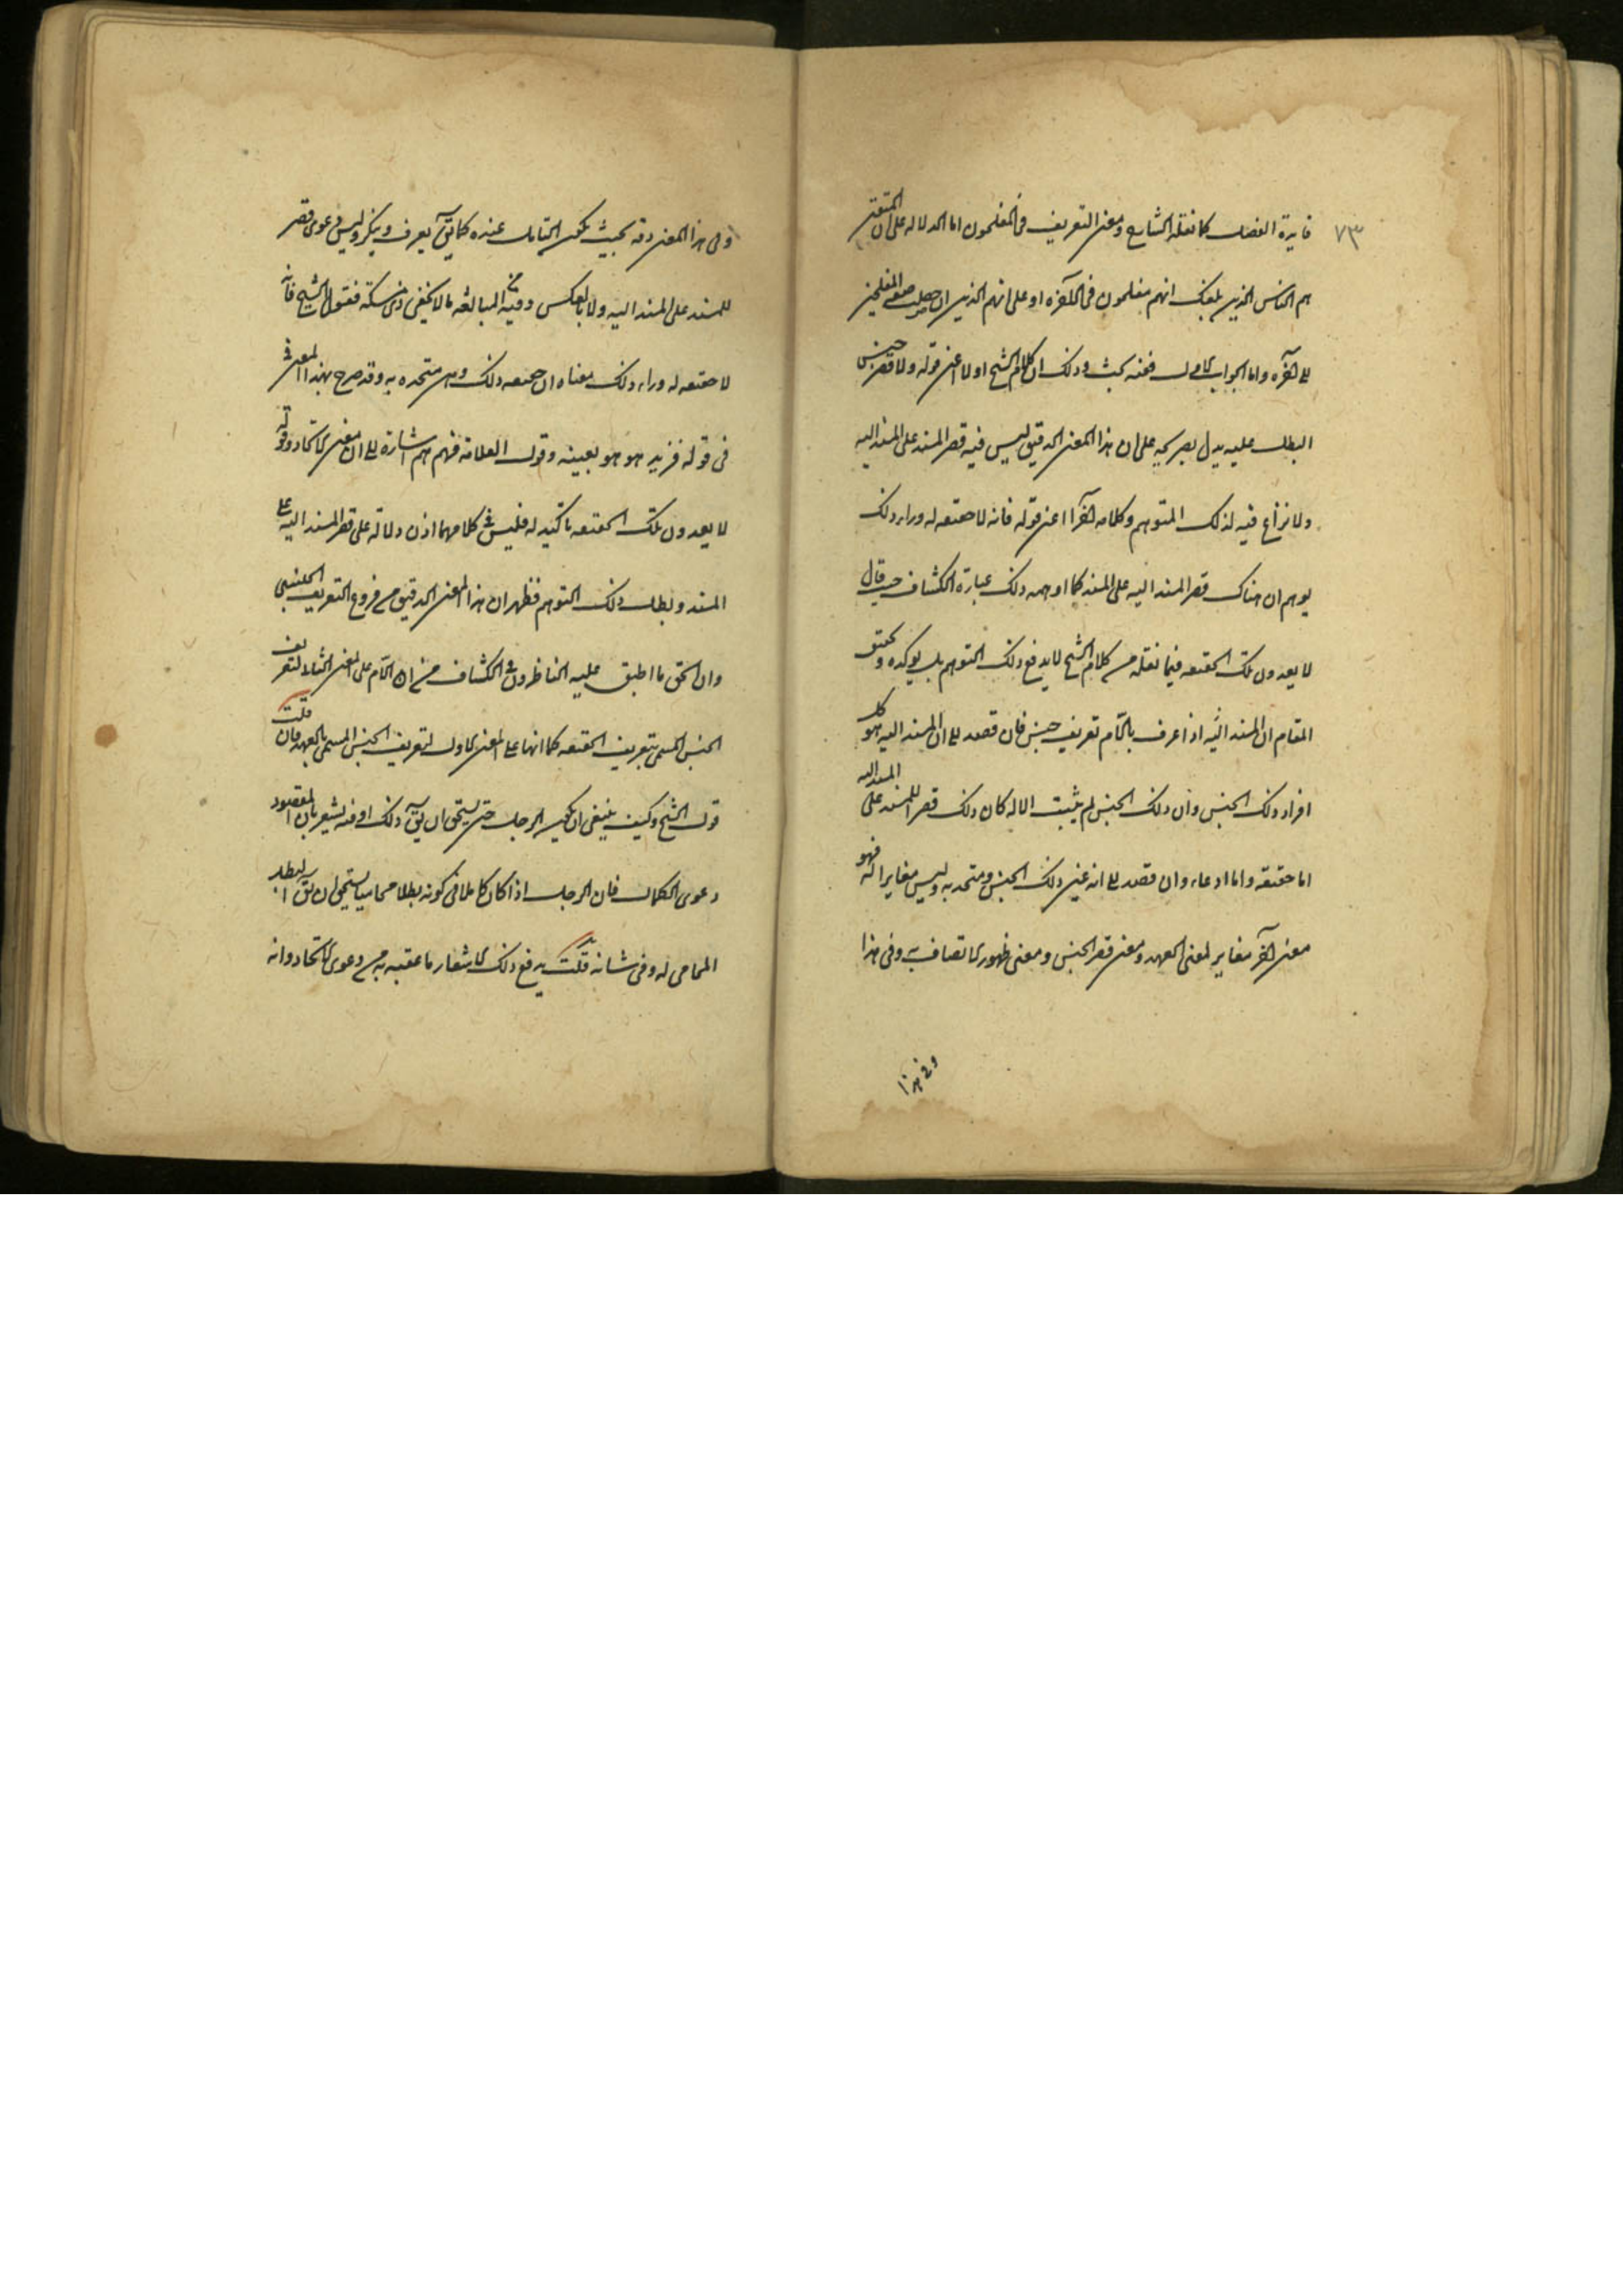 ٧٣
فايدة الفصل كما نقله الشارح ومعنى التعريف فى المفلحون اما الدلالة على ان المتقين
هم الناس الذين بلغك انهم مفلحون فى الآخرة او على انهم الذين ان حصلت صفة المفلحين
الى آخره واما الجواب الاول ففيه بحث وذلك ان كلام الشيخ اولا اعنى قوله ولا قصر جنس
البطل عليه يدل بصريحه على ان هذا المعنى الدقيق ليس فيه قصر المسند على المسند اليه
ولا نزاع فيه لذلك المتوهم وكلامه آخرا اعنى قوله فانه لا حقيقه له وراء ذلك
يوهم ان هناك قصر المسند اليه على المسند كما اوهمه ذلك عبارة الكشاف حيث قال
لا يعدون تلك الحقيقه فيما نقله من كلام الشيخ لا يدفع ذلك التوهم بل يوكده وتحقيق
المقام ان المسند اليه اذا عرف باللام تعريف جنس فان قصد الى ان المسند اليه هو كل
افراد ذلك الجنس وان ذلك الجنس لم يثبت الا له كان ذلك قصرا للمسند على المسند اليه
اما حقيقة واما ادعاء وان قصد الى انه عين ذلك الجنس ومتحد به وليس مغايرا له فهو
معنى آخر مغاير لمعنى العهد ومعنى قصر الجنس ومعنى ظهور الاتصاف به وفى هذا
وفى هذا
وفى هذا المعنى دقه بحيث يكون المتامل عنده كما يق يعرف وينكر وليس دعوى قصر
للمسند على المسند اليه ولا بالعكس وفيه من المبالغه ما لا يخفى على ذى مسكة فقول الشيخ فانه
لا حقيقه له وراء ذلك معناه ان حقيقه ذلك وهى متحده به وقد صرح بهذا المعنى فى
فى قوله فزيد هو هو بعينه وقول العلامة فهم هم اشارة الى ان معنى الاتحاد وقوله
لا يعدون تلك الحقيقه تاكيد له فليس فى كلامهما اذن دلالة على قصر المسند اليه على
المسند وبطل ذلك التوهم فظهر ان هذا المعنى الدقيق من فروع التعريف الجنسى
وان الحق ما اطبق عليه الناظرون فى الكشاف من ان اللام على المعنى الثانى لتعريف
الجنس المسمى بتعريف الحقيقه كما انها على المعنى الاول لتعريف الجنس المسمى بالعهد فان قلت
قول الشيخ وكيف ينبغى ان يكون الرجل حتى يستحق ان يق ذلك له وفيه يشعر بان المقصود
دعوى الكمال فان الرجل اذا كان كاملا فى كونه بطلا محاميا يستحق ان يق البطل
المحامى له وفى شانه قلت يدفع ذلك الاشعار ما عقبه به من دعوى الاتحاد وانه